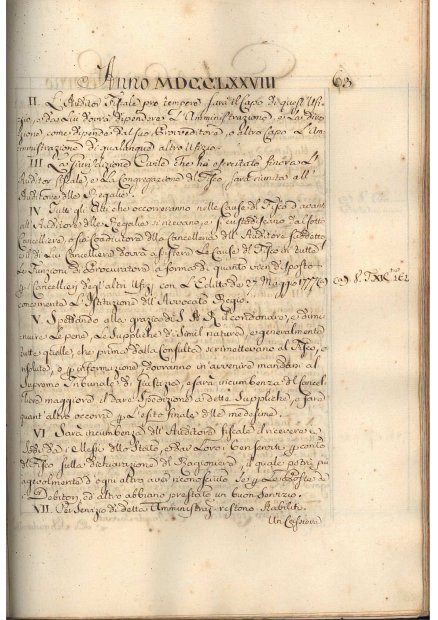 Anno MDCCLXXVIII
63
II. L'Auditor Fiscale pro tempore sarà il Capo di quest'Ufi-
zio, e da Lui dovrà dipendere L'Amministrazione, e La dire-
zione, come dipende dal suo Provveditore, o altro Capo L'Am-
ministrazione di qualunque altro ufizio.
III. La Giurisdizione Civile che ha esercitato finora L'
Auditor Fiscale, e La Congregazione di Fisco, sarà riunita all'
Auditore delle Regalie.
IV. Tutti gli Atti che occorreranno nelle Cause di Fisco avanti
all'Auditore delle Regalie si ricevano, e custodiscano dal sotto
Cancelliere, o sia Coadiutore della Cancelleria dell'Auditore suddetto
e il di Lui Cancelliere dovrà assistere Le Cause di Fisco in tutte
Le Funzioni di Procuratore a forma di quanto vien disposto
p. i Cancellieri degl'altri Ufizj con L'Editto de 27. Maggio 1777 (a)
concernente L'Istituzione dell'Avvocato Regio.
(a) 8. T. XIX. 162
V. Spettando alla grazia di S. A. R. il condonare, e dimi-
nuire Le pene, Le Suppliche di simil natura, e generalmente
tutte quelle, che prima dalla Consulta si rimettevano al Fisco,
p. informazione dovranno in avvenire mandarsi al
Supremo Tribunale di Giustizia, e sarà incumbenza del Cancel-
liere maggiore il dare Spedizione a dette Suppliche, e fare
quant'altro occorra p. L'esito finale delle medesime.
VI. Sarà incumbenza dell'Auditore Fiscale il ricevere
i Messi dello Stato, e dar Loro i Ben serviti, p. conto
del Fisco sulla dichiarazione del Ragioniere, il quale potrà più
agevolmente d'ogni altro aver riconosciuto se p. Le Poste
i Debitori, ed altro abbiano prestato un buon servizio.
VII. Per Servizio di detta Amministraz. restono stabiliti
Un Cassiere